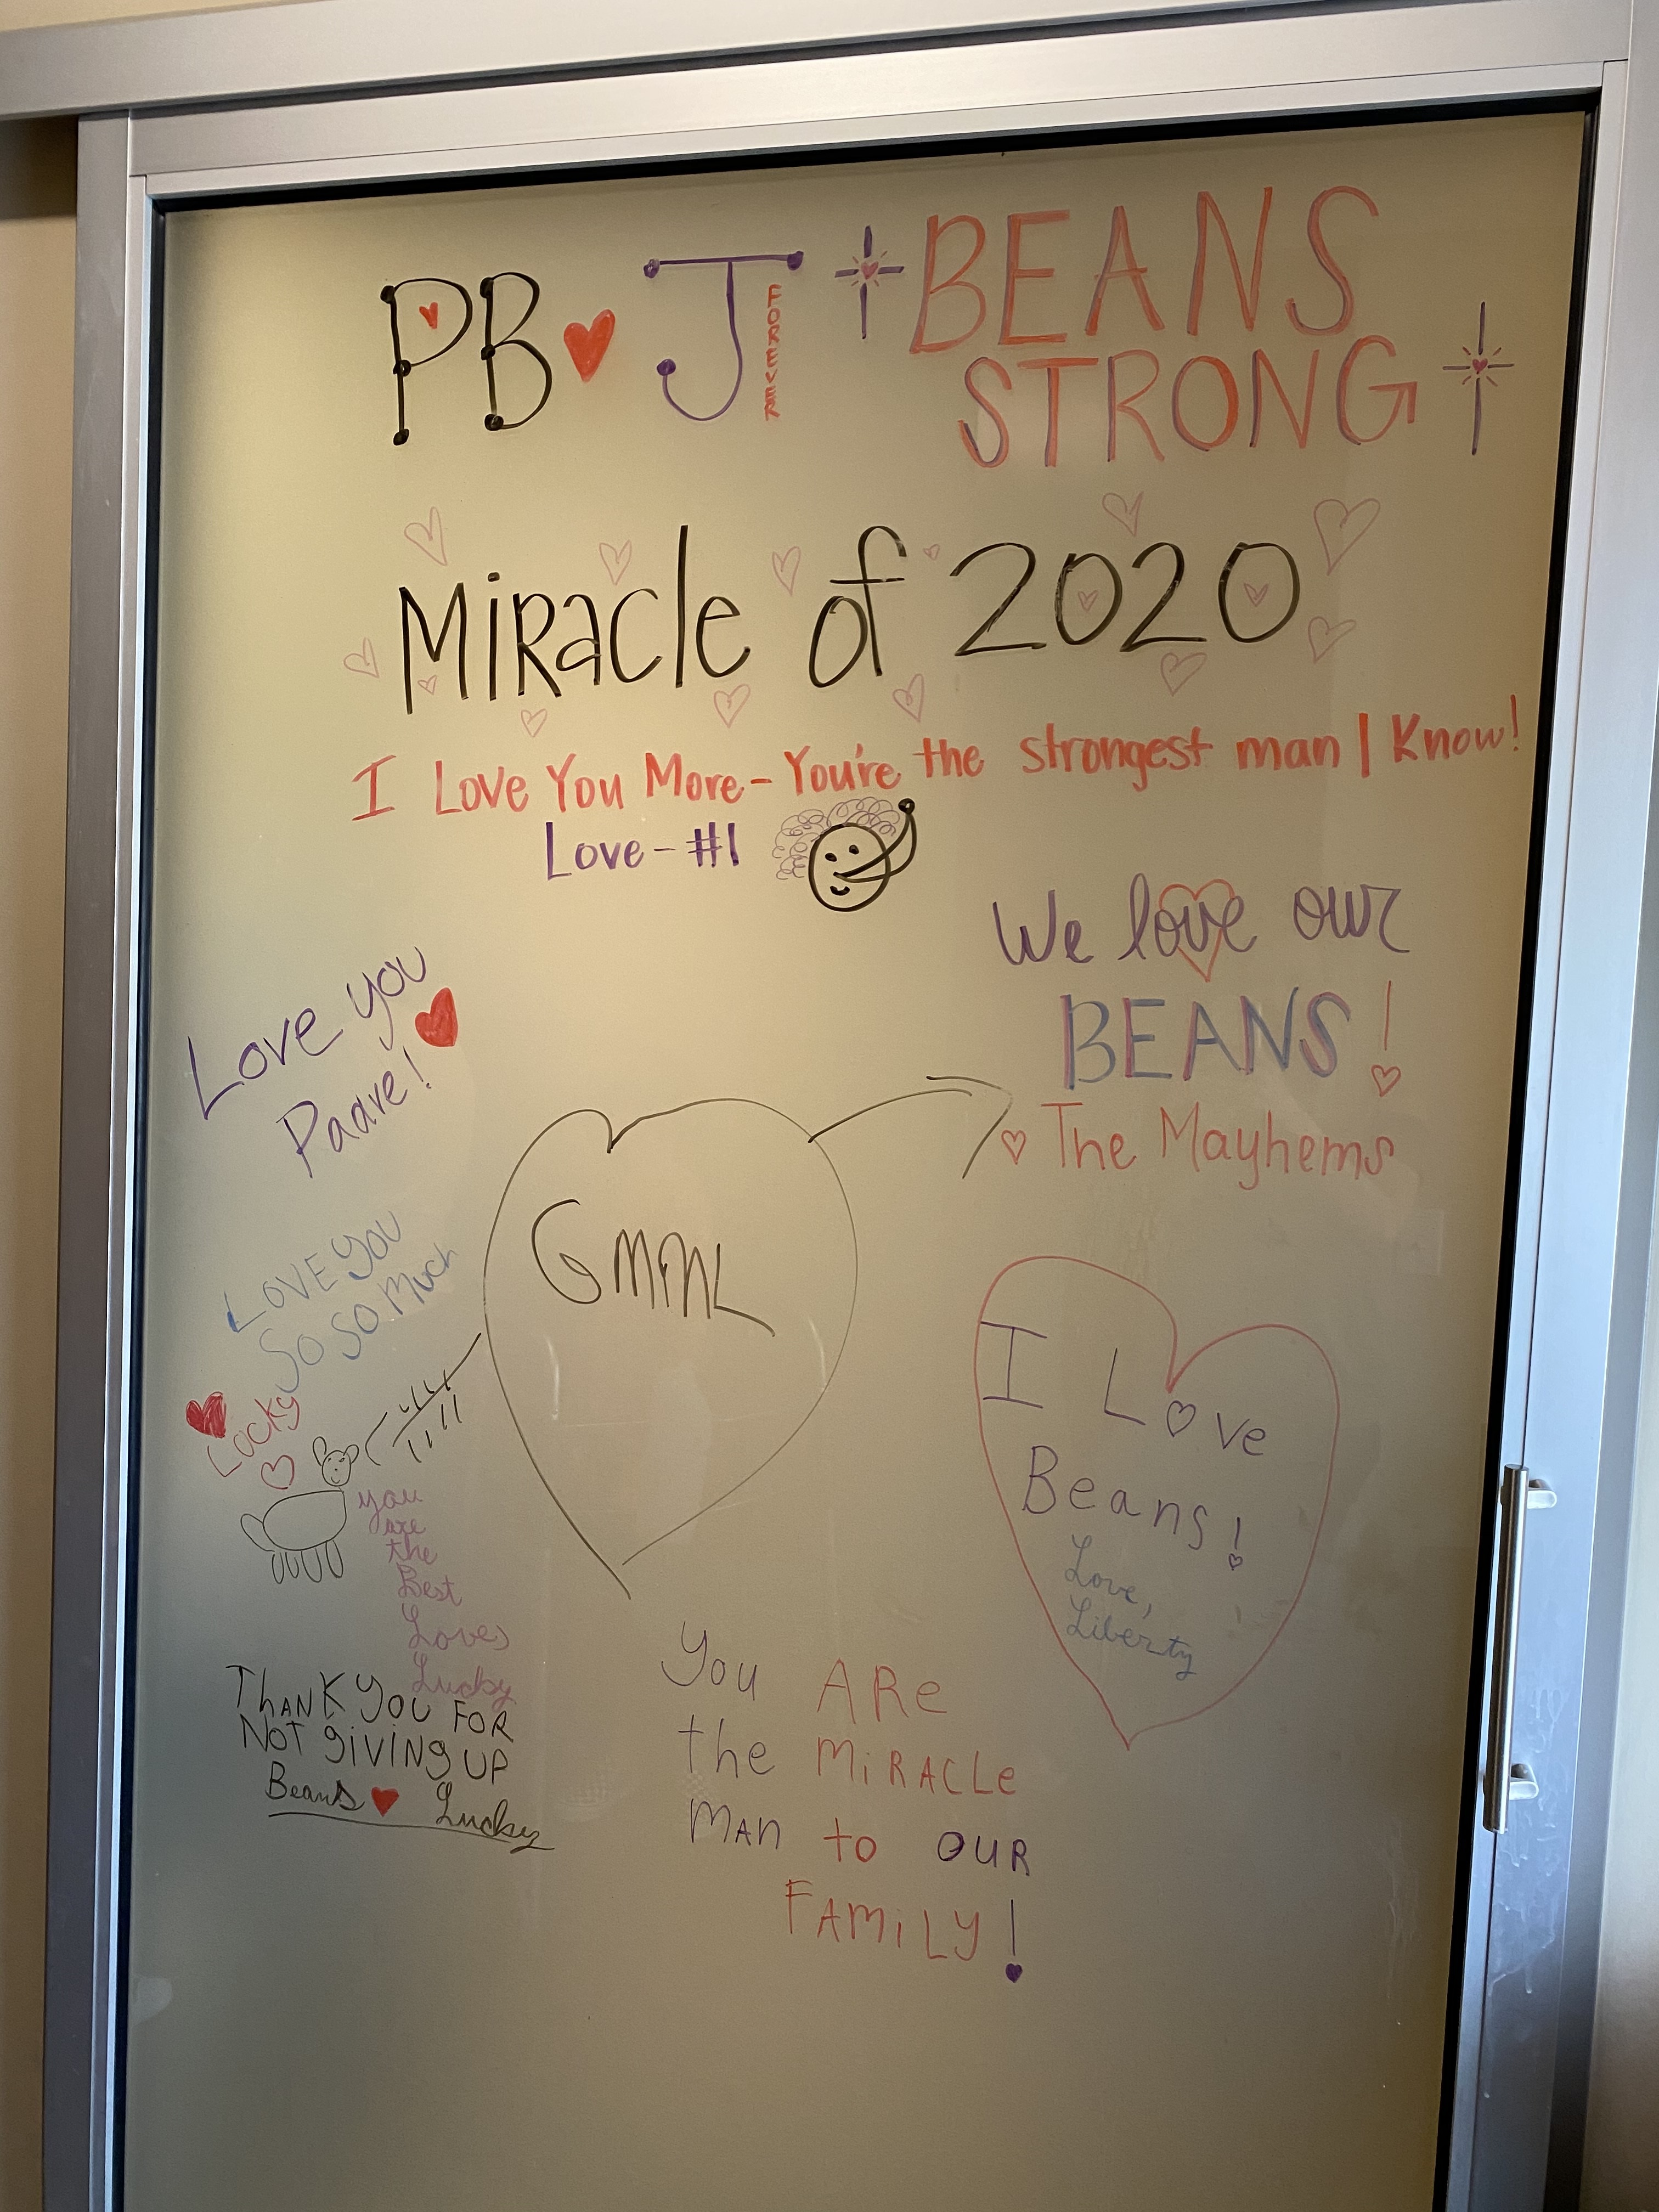 PB J FOREVER
BEANS
STRONG
Miracle of 2020
I Love You More - You're the strongest man I Know!
Love - #1
We love our
BEANS!
The Mayhems
Love you
Paave!
GMML
LOVE you
So So Much
Lucky
you
are
the
Best
Loves
Lucky
I Love
Beans!
Love,
Liberty
THANK YOU FOR
NOT giviNg UP
Beans Lucky
You ARe
the MiRACLe
MAn to OUR
FAMiLy!